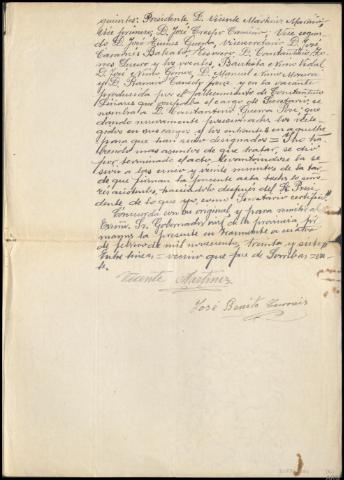 guientes: Presidente D. Vicente Martinez
Vice primero, D. José Crespo Vice segun-
do D. José Vicesecretario D. José
Tesorero D. Constantino
y los vocales, Bautista Nino Vidal
D. José Nindo Gomez, D. Manuel Nino
y D. Ramon y en la vacante
producida por el fallecimiento de Constantino
que ocupaba el cargo de Secretario, se
nombra a D. Constantino Guerra José, que
dando nuevamente posesionados los
gidos en sus cargos y los entrantes en aquellos
para que han sido designados = Y no ha-
biendo mas asuntos de que tratar, se dio
por terminado el acto levantandose la se-
sion a las cinco y veinte minutos de la tar-
de que firman la presente acta todos los concu-
rrentes, haciendolo después del Sr Presi-
dente, de lo que yo, como Secretario certifico."
Concuerda con su original y para remitir al
Excmo. Sr. Gobernador civil de la provincia, fir-
mamos la presente en a cuatro
de febrero de mil novecientos treinta y siete
Entre lineas = vecino que fue de Tombas = va-
le.
Vicente Martinez
José Benito